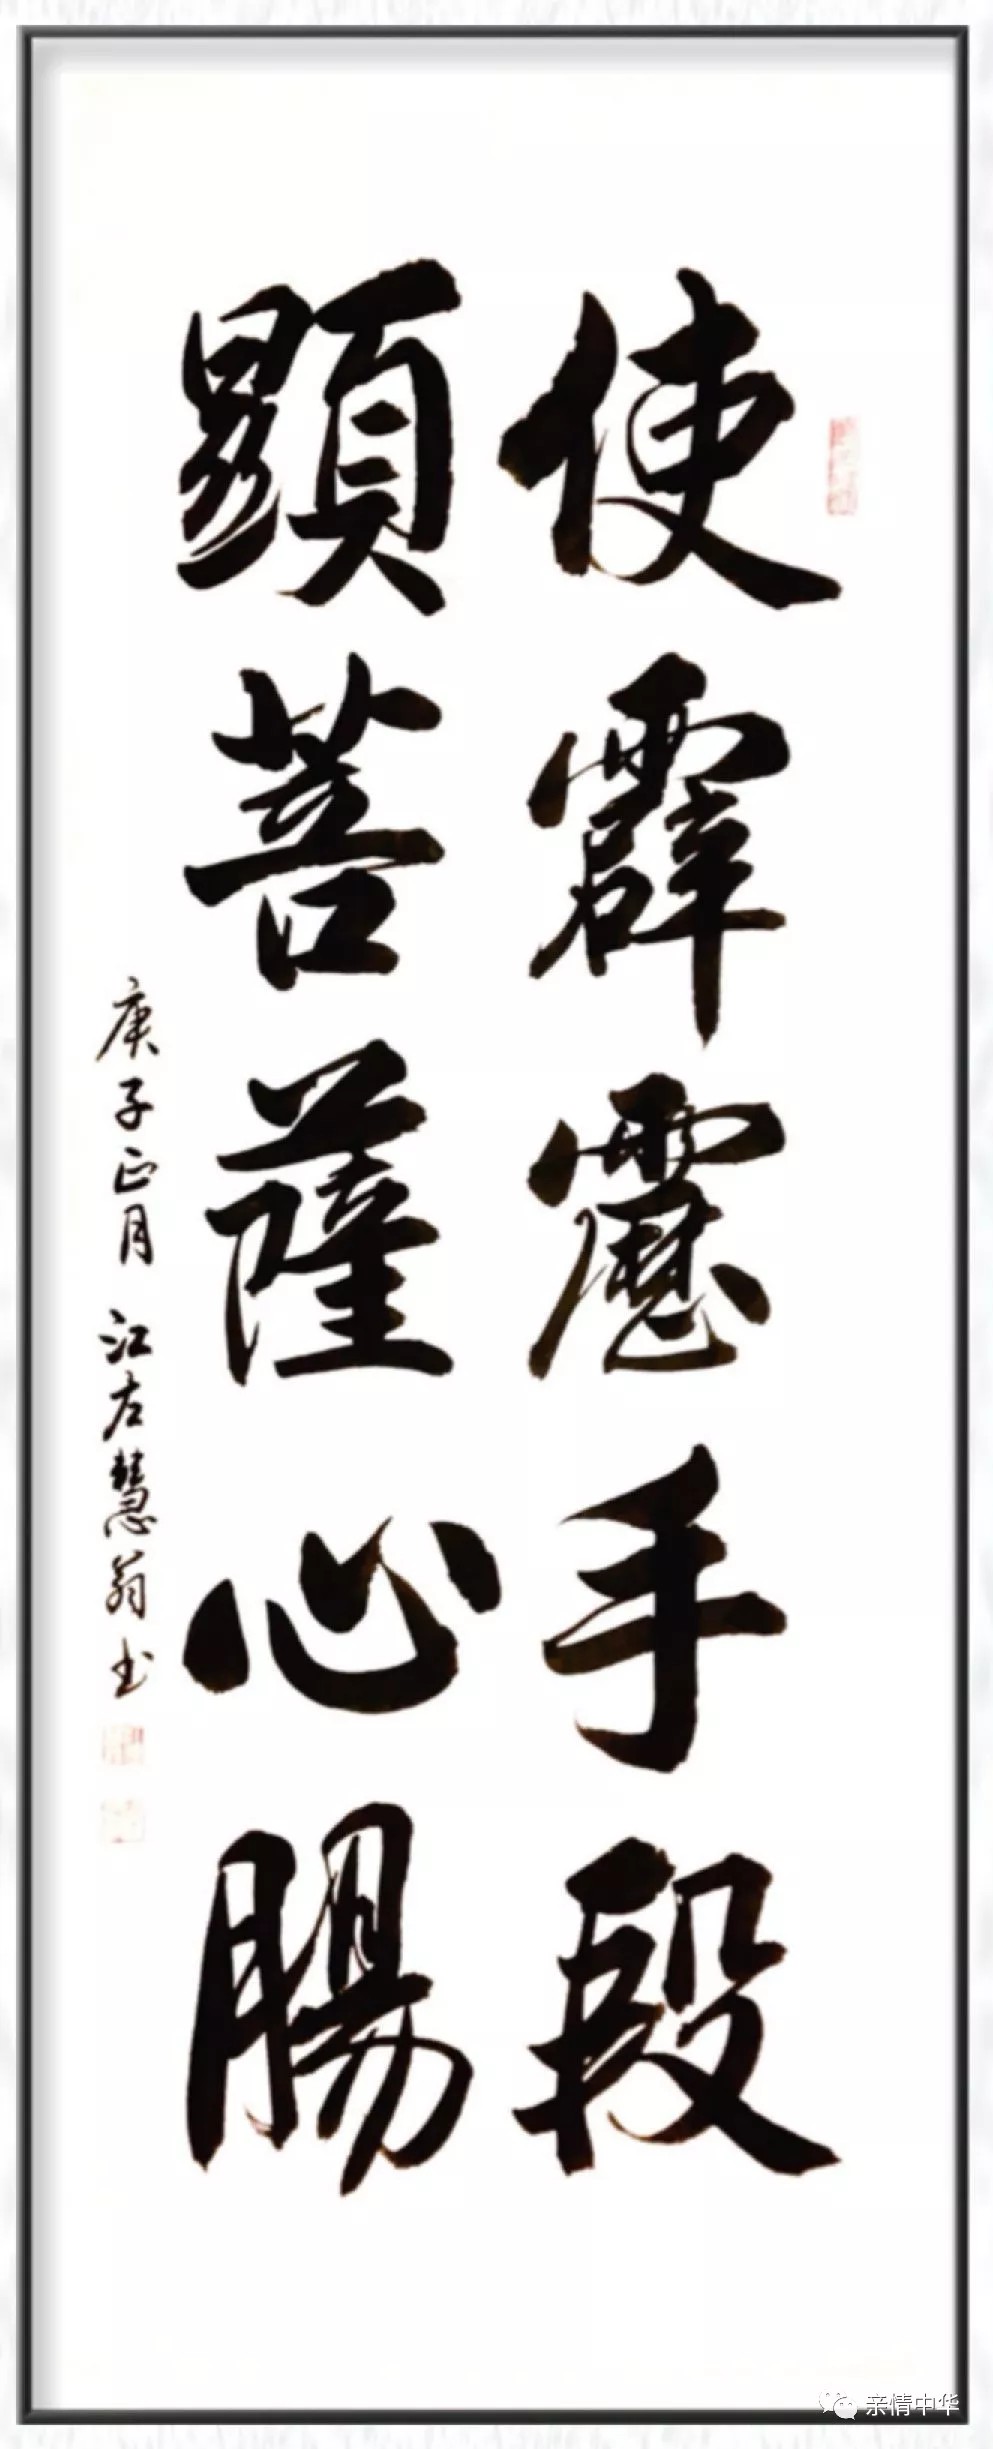 使霹靂手段
顯菩薩心腸
庚子正月 江左慧翁书
亲情中华